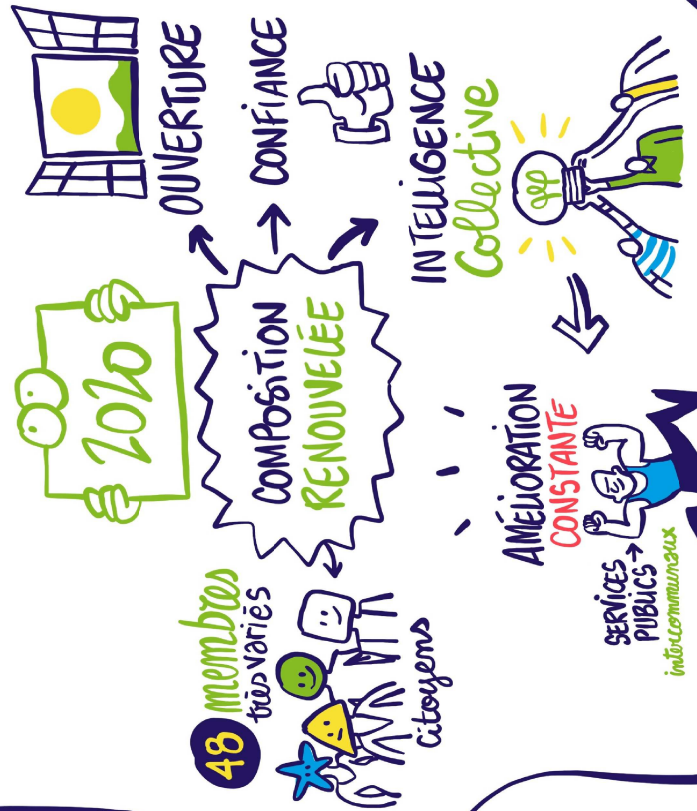 2020
COMPOSITION
RENOUVELÉE
48
membres
très variés
citoyens
OUVERTURE
CONFIANCE
INTELLIGENCE
Collective
AMÉLIORATION
CONSTANTE
SERVICES
PUBLICS
intercommunaux